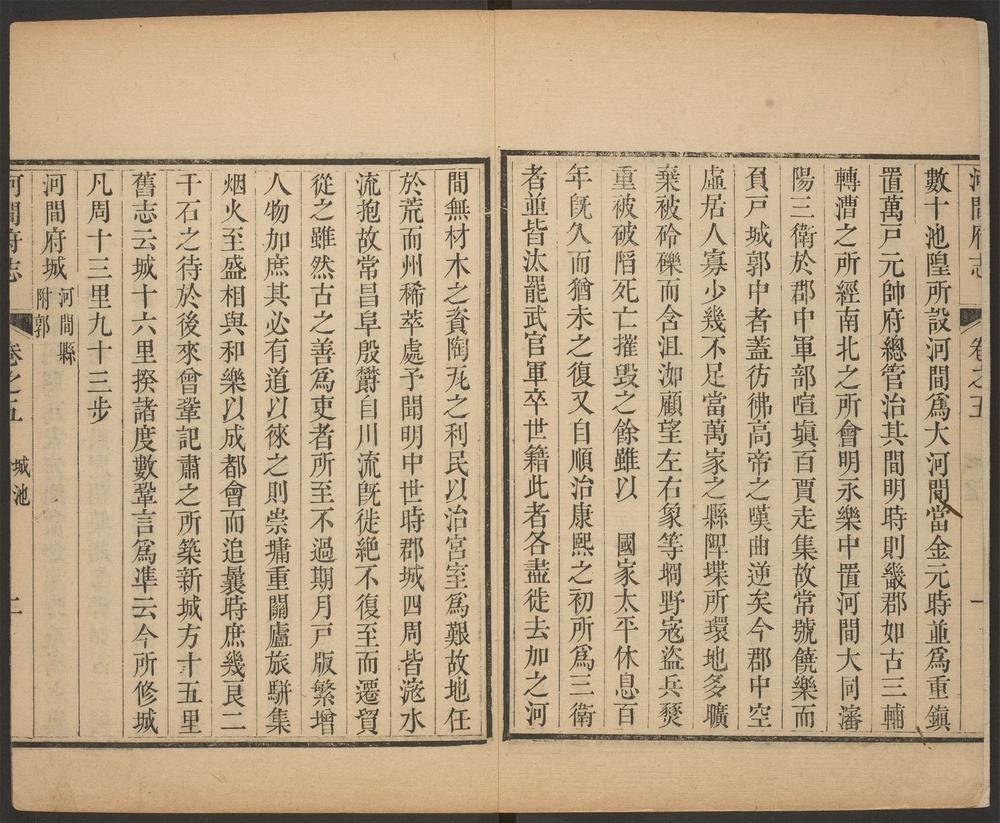 河間府志　卷之五　一
數十池隍所設河間爲大河間當金元時並爲重鎮
置萬戸元帥府總管治其間明時則畿郡如古三輔
轉漕之所經南北之所會明永樂中置河間大同瀋
陽三衛於郡中軍部喧塡百賈走集故常號饒樂而
頁戸城郭中者蓋彷彿高帝之嘆曲逆矣今郡中空
虛居人寡少幾不足當萬家之縣陴堞所環地多曠
棄被砱礫而含沮洳顧望左右象等坰野宼盜兵燹
重被破陷死亡摧毀之餘雖以　國家太平休息百
年旣久而猶未之復又自順治康熙之初所爲三衛
者並皆汰罷武官軍卒世籍此者各盡徙去加之河
間無材木之資陶瓦之利民以治宮室爲艱故地任
於荒而州稀萃處予聞明中世時郡城四周皆滱水
流抱故常昌阜殷欝自川流旣徙絶不復至而遷貿
從之雖然古之善爲吏者所至不過期月戸版繁增
人物加庶其必有道以徠之則崇墉重關廬旅駢集
烟火至盛相與和樂以成都會而追曩時庶幾良二
千石之待於後來曾鞏記肅之所築新城方十五里
舊志云城十六里揆諸度數鞏言爲準云今所修城
凡周十三里九十三步
河間府城河間縣附郭
河間府志　卷之五　城池　二